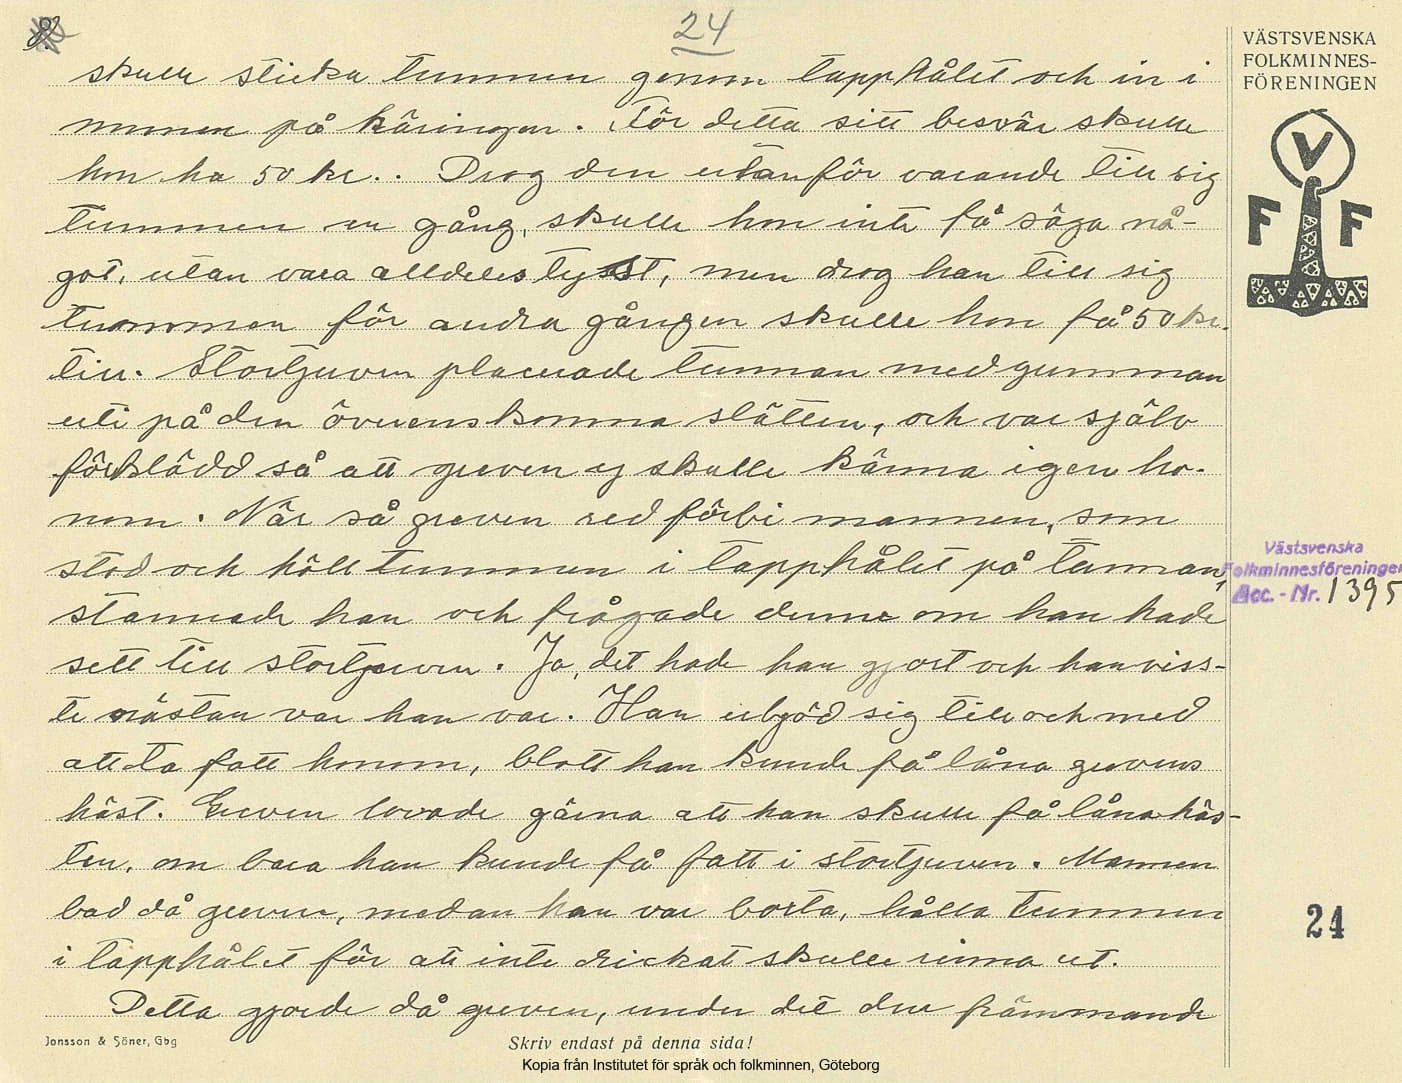 8.
24
skulle sticka tummen genom tapphålet och in i
munnen på käringen. För detta sitt besvär skulle
hon ha 50 kr.. Drog den utanför varande till sig
tummen en gång, skulle hon inte få säga nå-
got, utan vara alldeles tysst, men drog han till sig
tummen för andra gången skulle hon få 50 kr.
till. Stortjuven placerade tunnan med gumman
uti på den överenskomna slätten, och var själv
förklädd så att greven ej skulle känna igen ho-
nom. När så greven red förbi mannen, som
stod och höll tummen i tapphålet på tunnan,
stannade han och frågade denne om han hade
sett till stortjuven. Ja, det hade han gjort och han viss-
te nästan var han var. Han erbjöd sig till och med
att ta fatt honom, blott han kunde få låna grevens
häst. Greven lovade gärna att han skulle få låna häs-
ten, om bara han kunde få fatt i stortjuven. Mannen
bad då greven, medan han var borta, hålla tummen
i tapphålet för att inte drickat skulle rinna ut.
Detta gjorde då greven, under det den främmande
VÄSTSVENSKA
FOLKMINNES-
FÖRENINGEN
V
F F
Västsvenska
Folkminnesföreningen
Acc. - Nr. 1395
24
Jonsson & Söner, Gbg
Skriv endast på denna sida!
Kopia från Institutet för språk och folkminnen, Göteborg